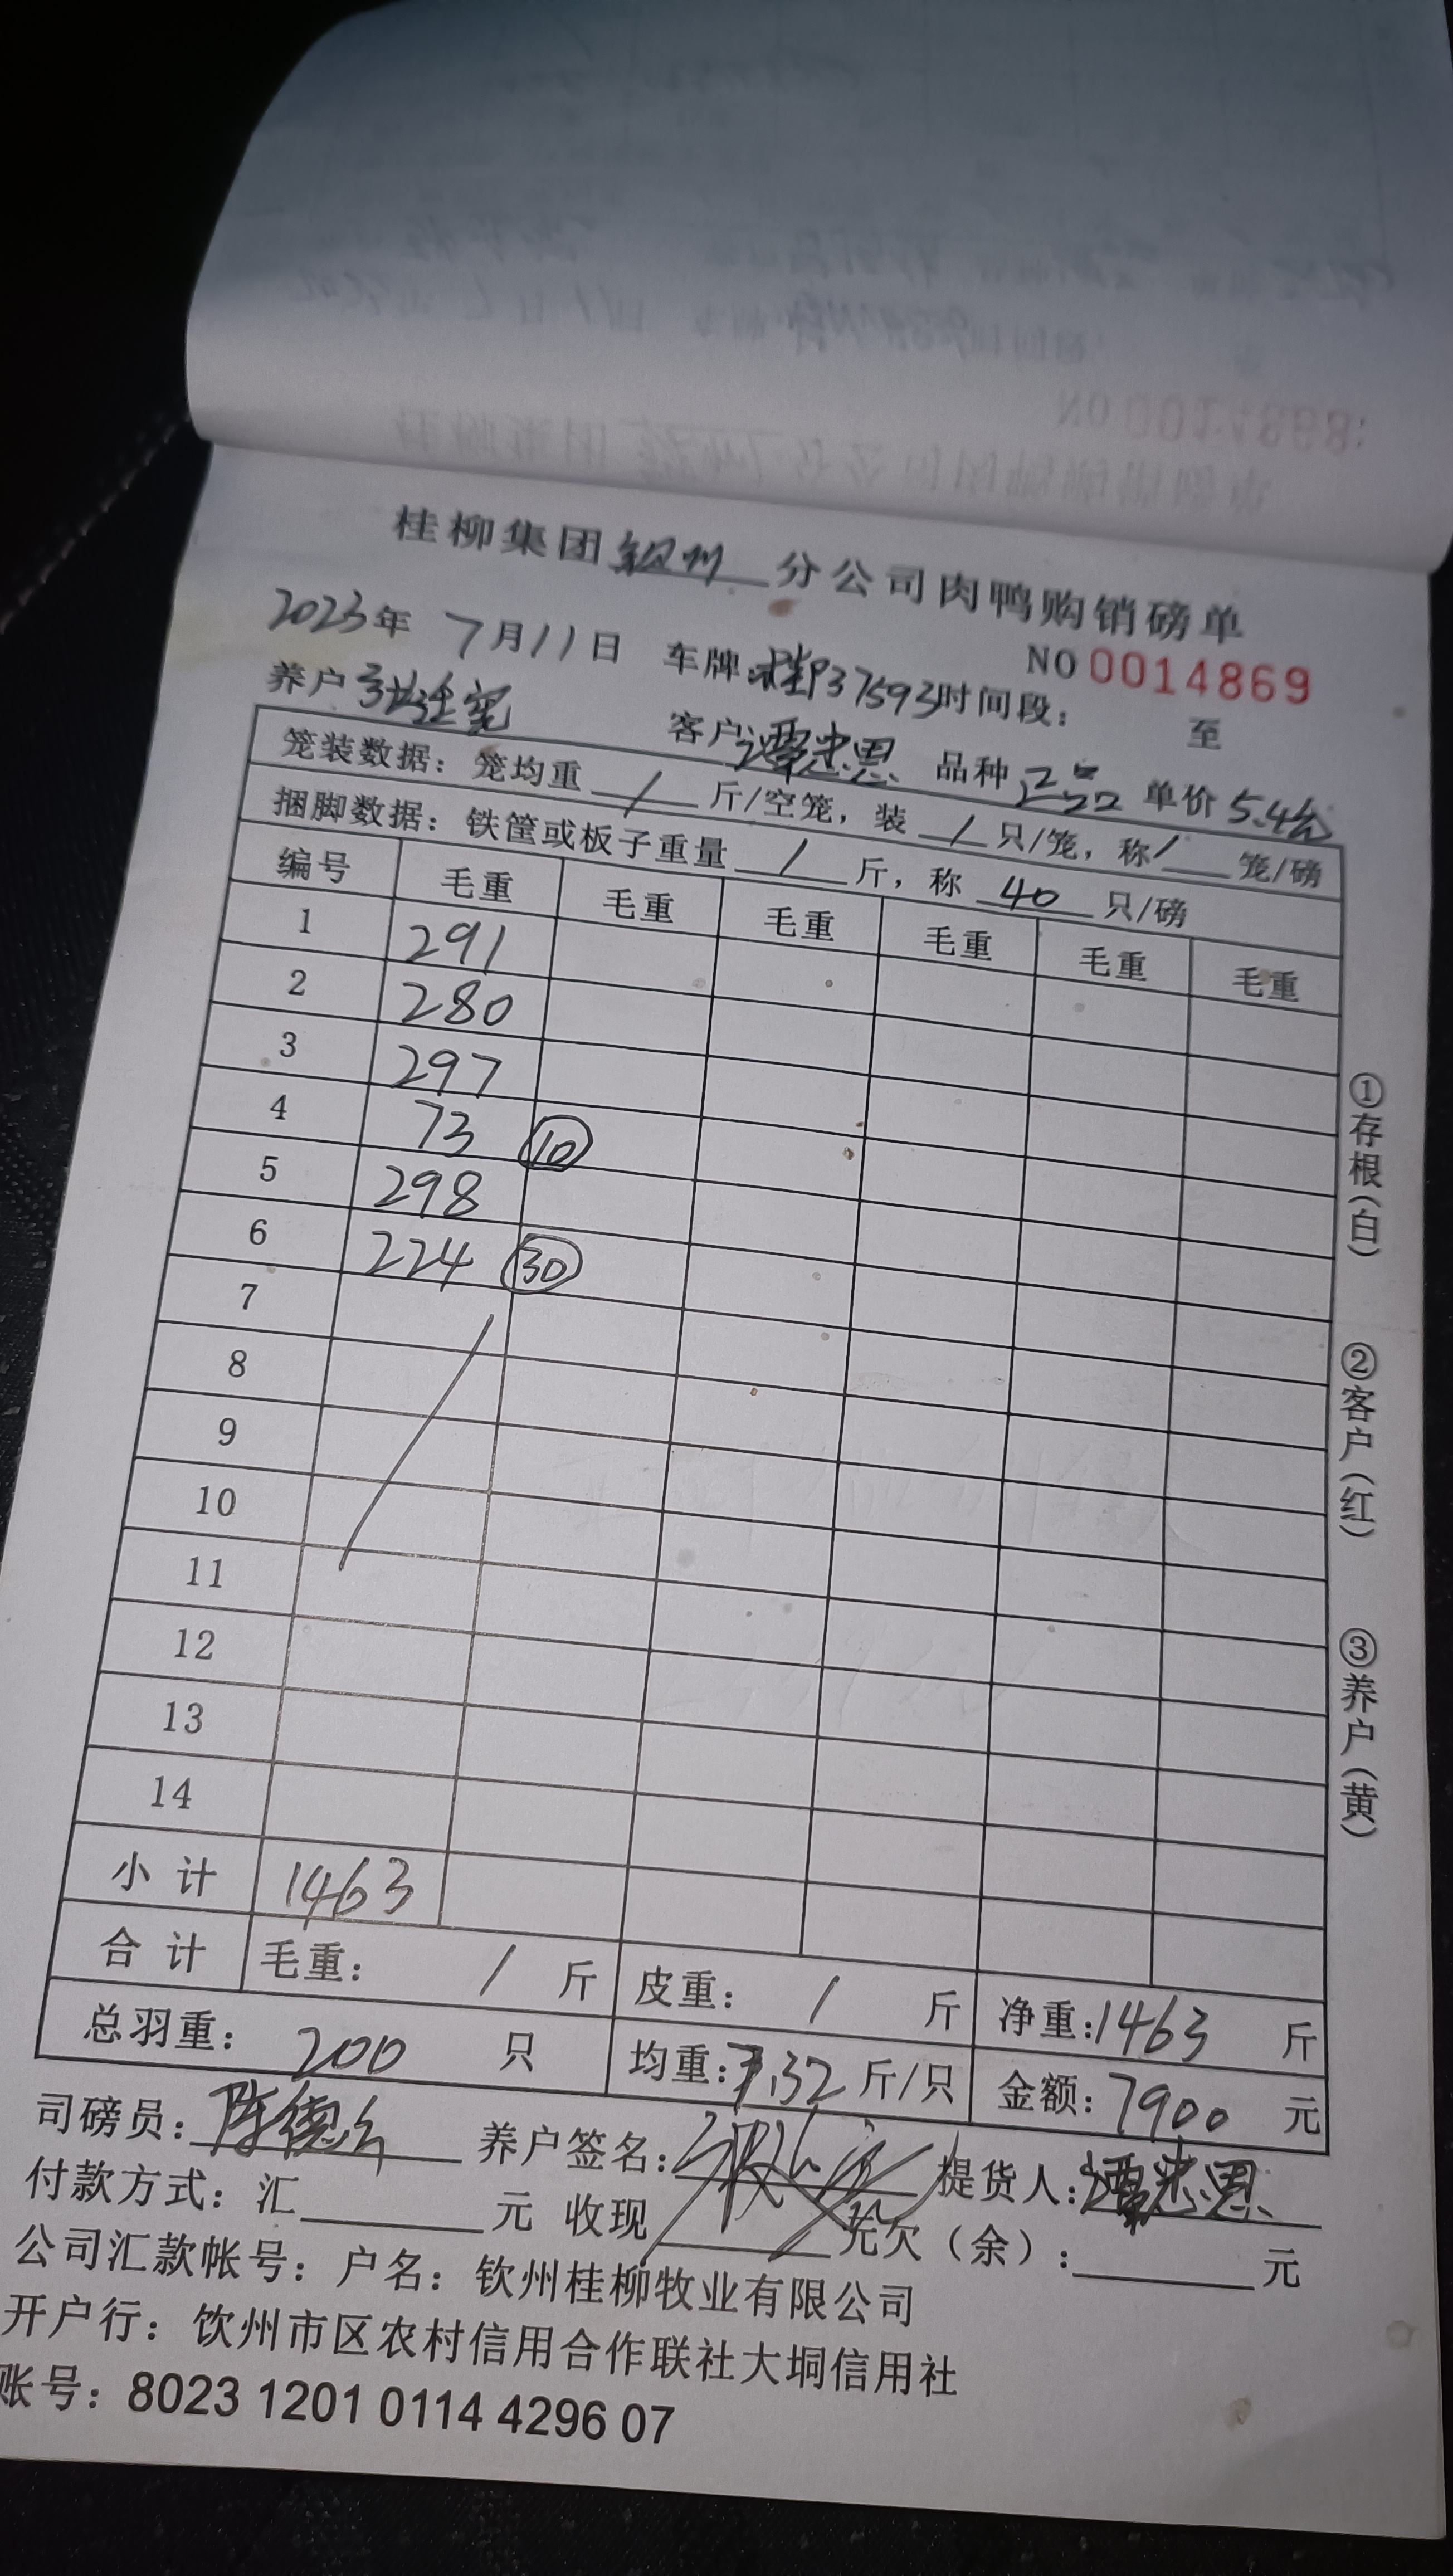 桂柳集团钦州分公司肉鸭购销磅单
NO 0014869
2023年 7月11日 车牌:桂P37593时间段: 至
养户 客户:谭忠恩 品种 正品 单价5.4元
笼装数据: 笼均重 / 斤/空笼, 装 / 只/笼, 称 / 笼/磅
捆脚数据: 铁筐或板子重量 / 斤, 称 40 只/磅
编号 毛重 毛重 毛重 毛重 毛重 毛重
1 291
2 280
3 297
4 73 ⑩
5 298
6 224 ㉚
7
8
9
10
11
12
13
14
小计 1463
合计 毛重: / 斤 皮重: / 斤 净重:1463 斤
总羽重: 200 只 均重:7.32 斤/只 金额:7900 元
司磅员: 养户签名: 提货人:谭忠恩
付款方式: 汇 元 收现 元欠(余): 元
公司汇款帐号: 户名: 钦州桂柳牧业有限公司
开户行: 钦州市区农村信用合作联社大垌信用社
账号: 8023 1201 0114 4296 07
①存根(白)
②客户(红)
③养户(黄)